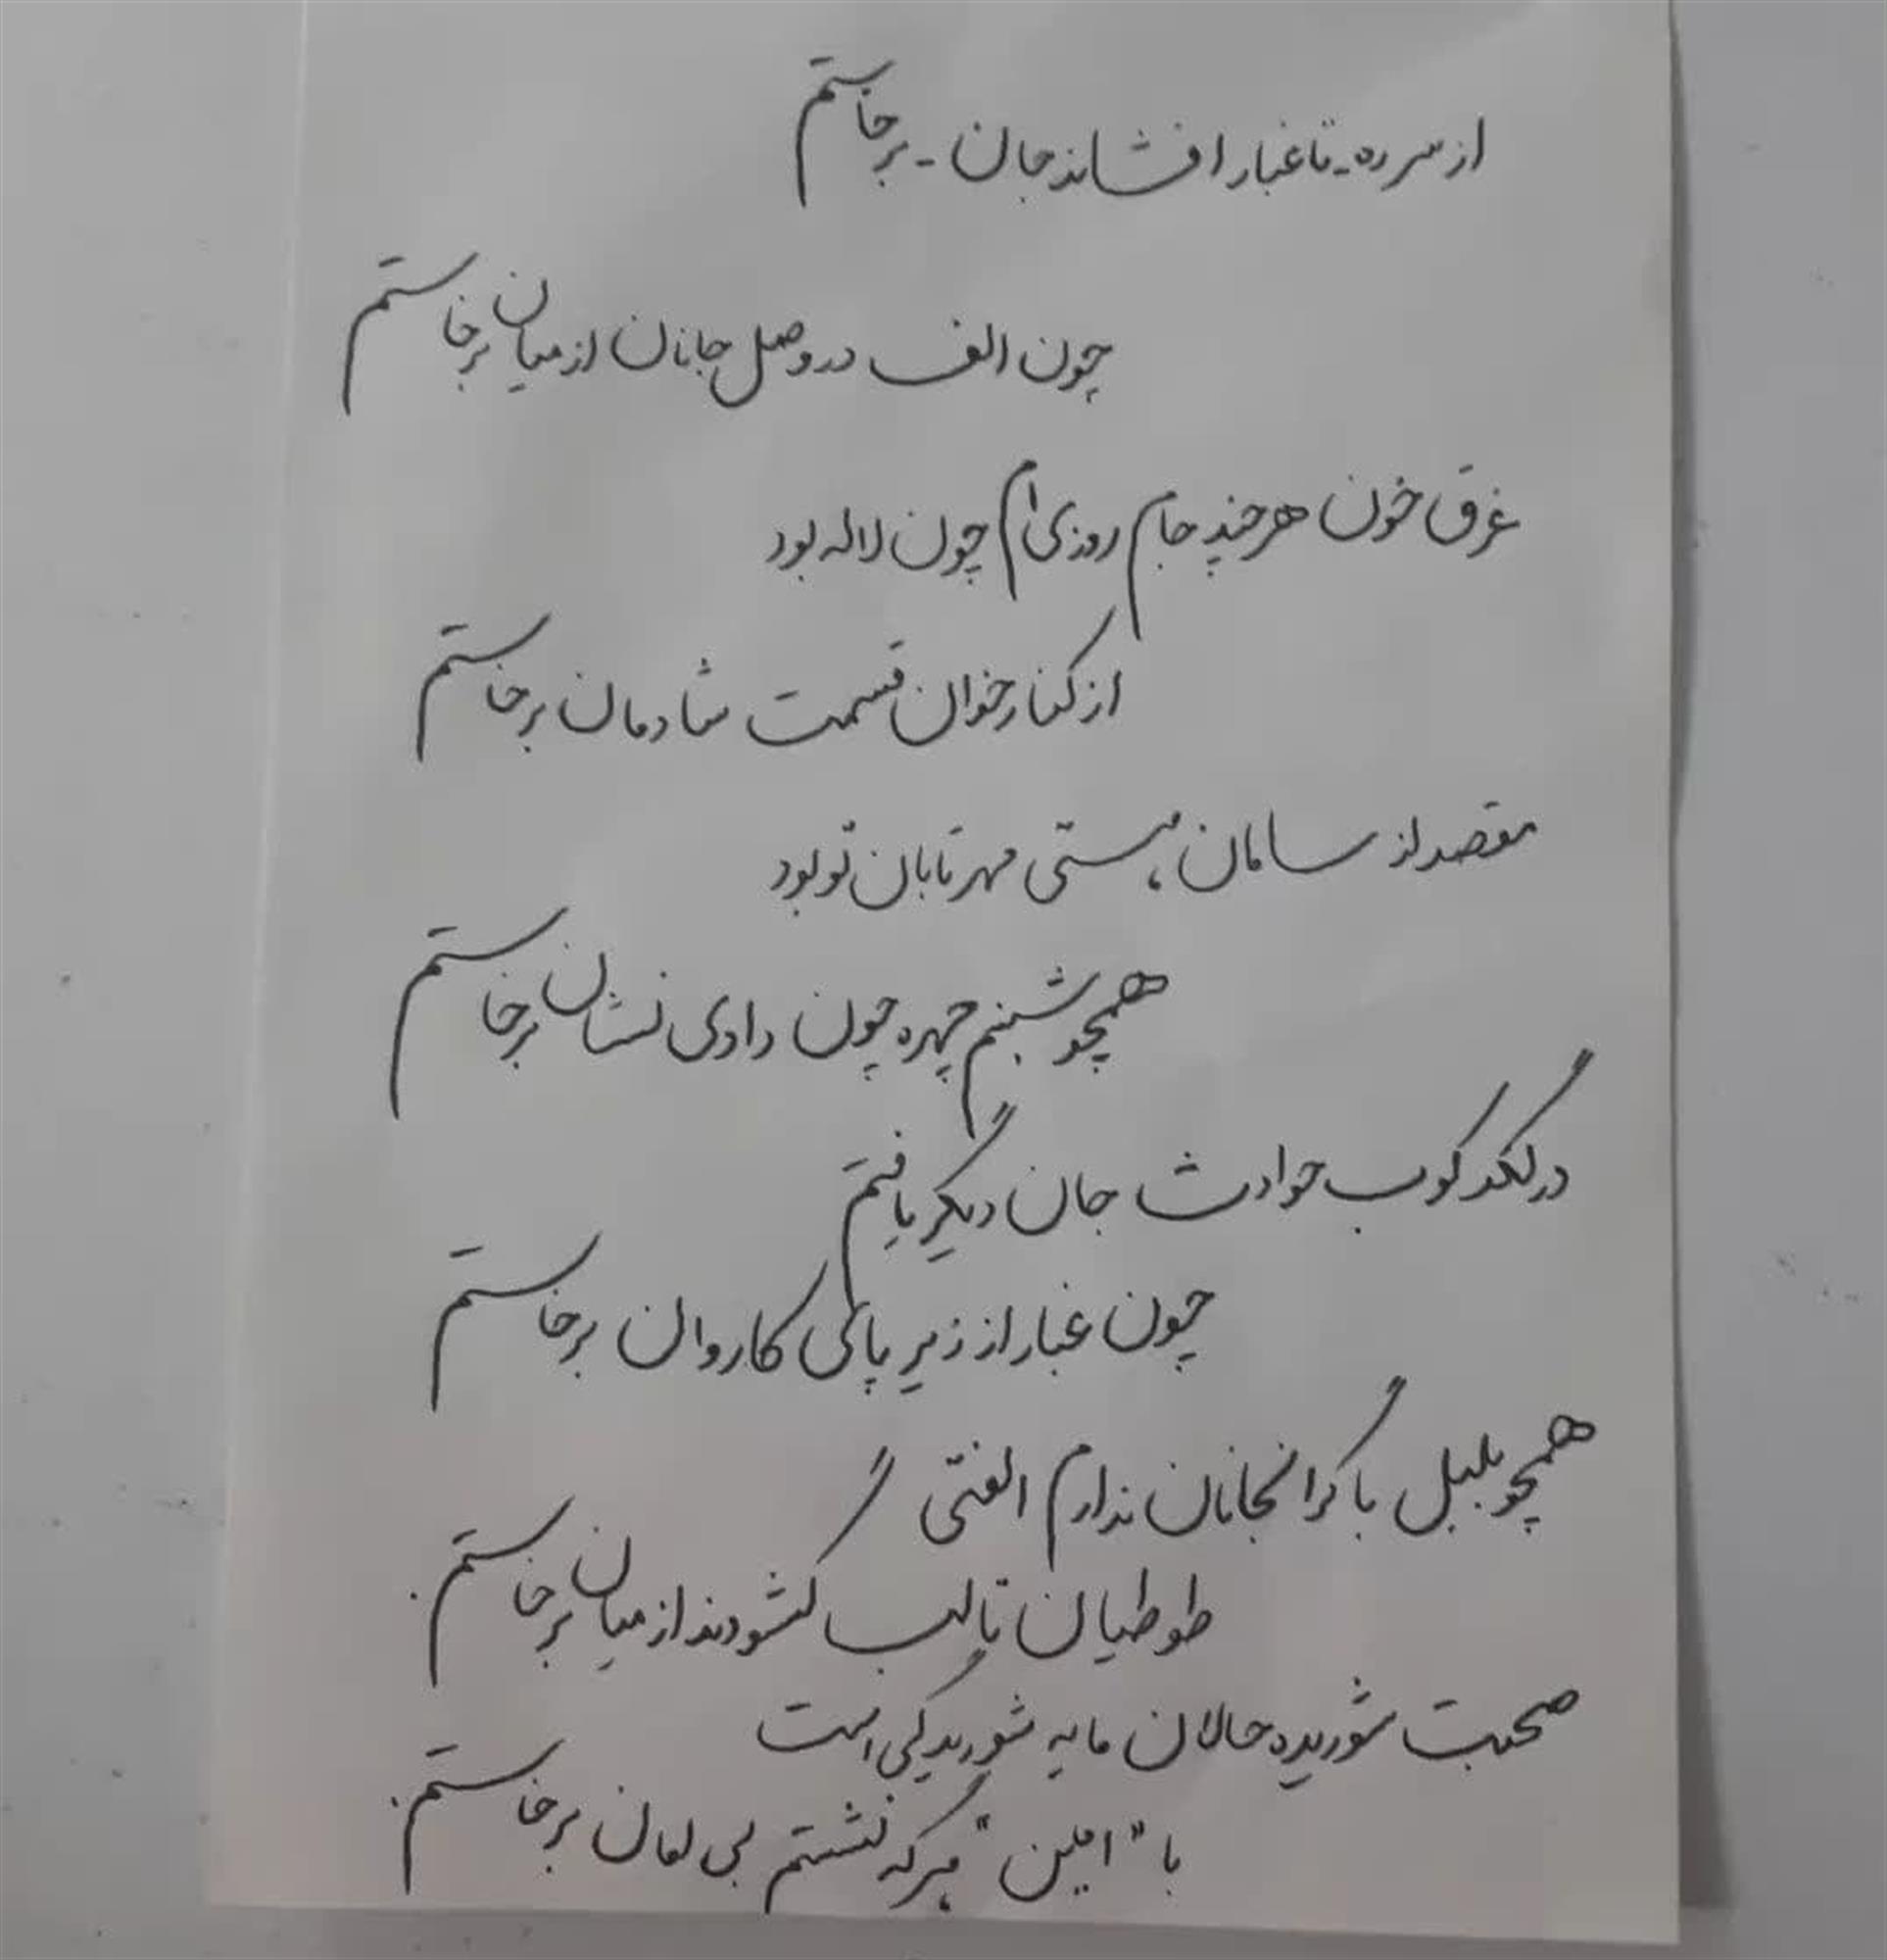 از سر ره - تا غبار افشاند جان - برخاستم
چون الف در وصل جانان از میان برخاستم
غرق خون هر چند جام روزی‌ام چون لاله بود
از کنار خوان قسمت شادمان برخاستم
مقصد از سامان هستی مهر تابان تو بود
همچو شبنم چهره چون دادی نشان برخاستم
در لگدکوب حوادث جان دیگر یافتم
چون غبار از زیر پای کاروان برخاستم
همچو بلبل با گرانجانان ندارم الفتی
طوطیان تا لب گشودند از میان برخاستم.
صحبت شوریده حالان مایه شوریدگی است
با "امین" هر که نشستم بی امان برخاستم.